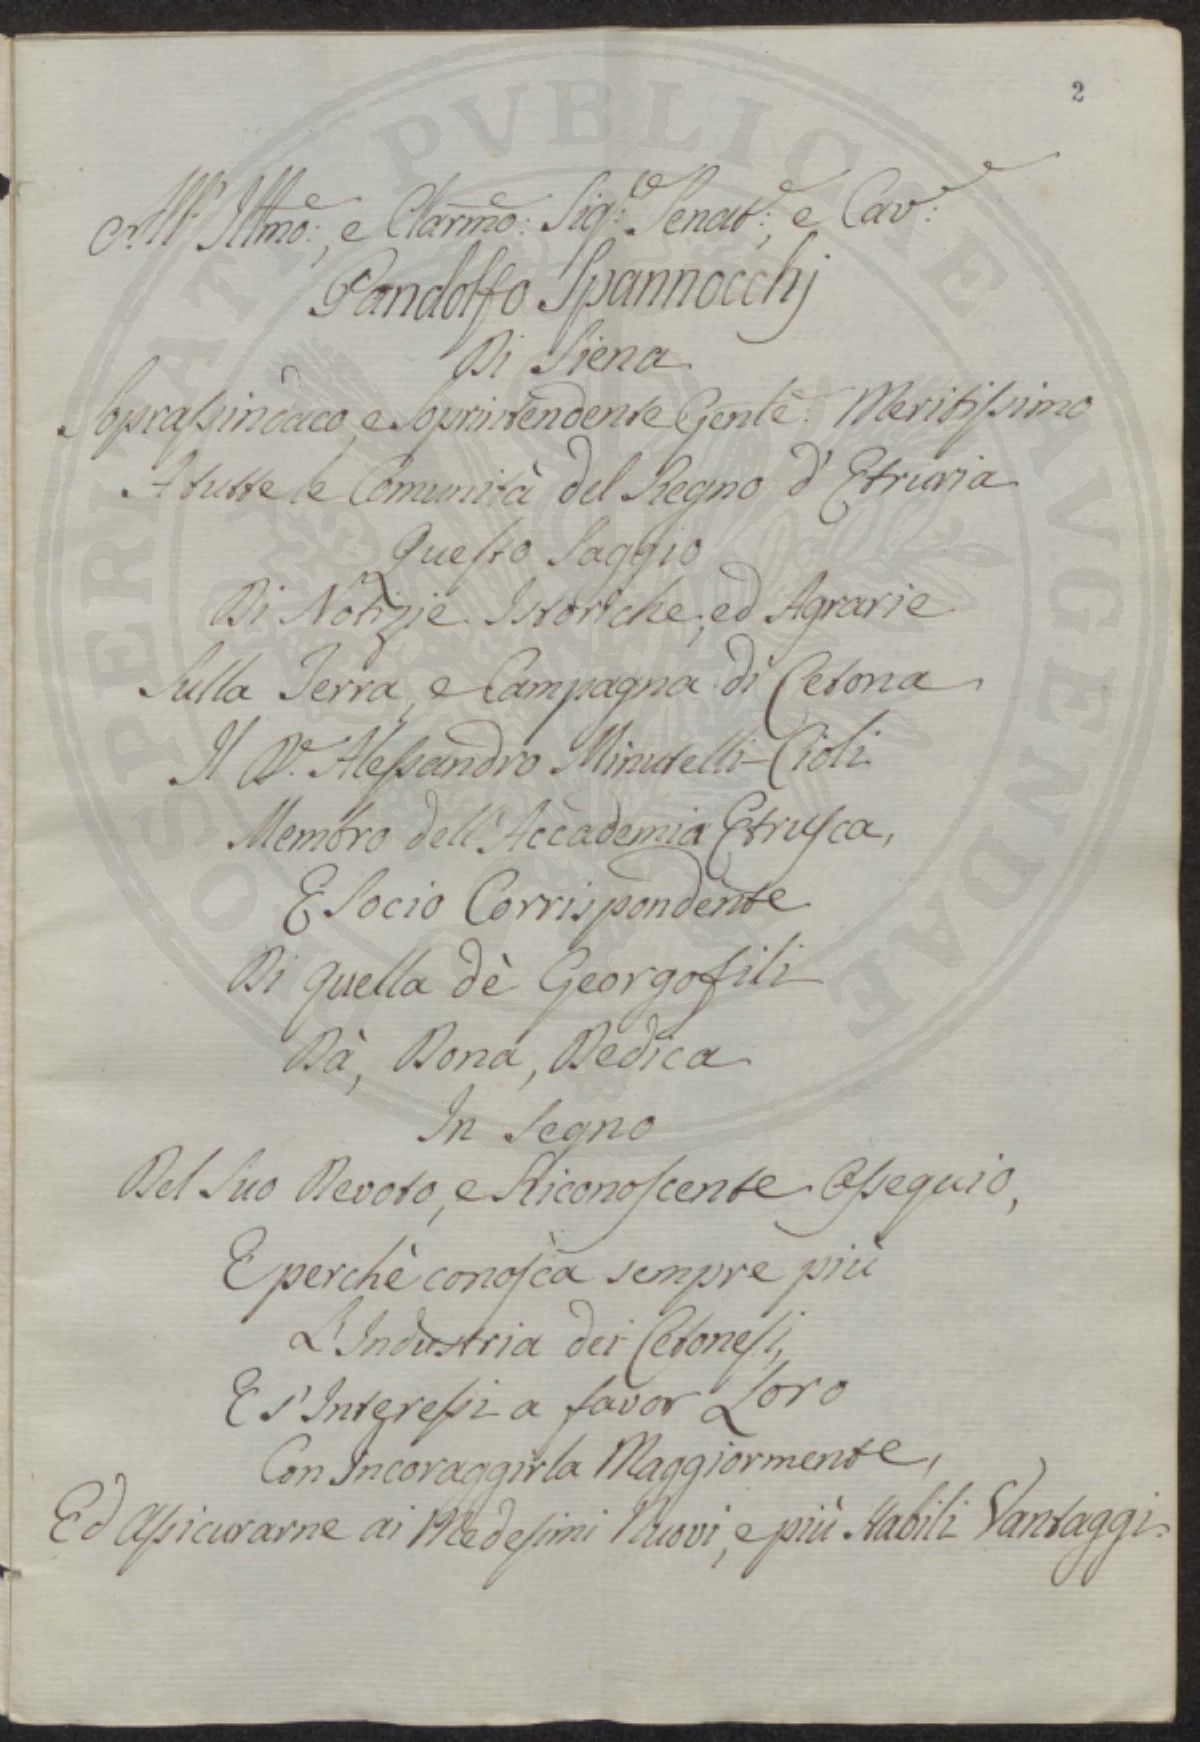 2
All' Illmo:, e Clarmo: Sig:re Senat:e, e Cav:e
Pandolfo Spannocchj
Di Siena
Soprassindaco, e Soprintendente Genle: Meritissimo
A tutte le Comunità del Regno d'Etruria
Questo Saggio
Di Notizie Istoriche, ed Agrarie
Sulla Terra, e Campagna di Cetona
Il Dr. Alessandro Minutelli-Cioli
Membro dell'Accademia Etrusca,
E Socio Corrispondente
Di quella dè Georgofili
Dà, Dona, Dedica
In Segno
Del Suo Devoto, e Riconoscente Ossequio,
E perchè conosca sempre più
L'Industria dei Cetonesi,
E s'Interessi a favor Loro
Con Incoraggirla Maggiormente,
Ed Assicurarne ai Medesimi Nuovi, e più stabili Vantaggi.
PROSPERITATI PVBLICAE AVGENDAE